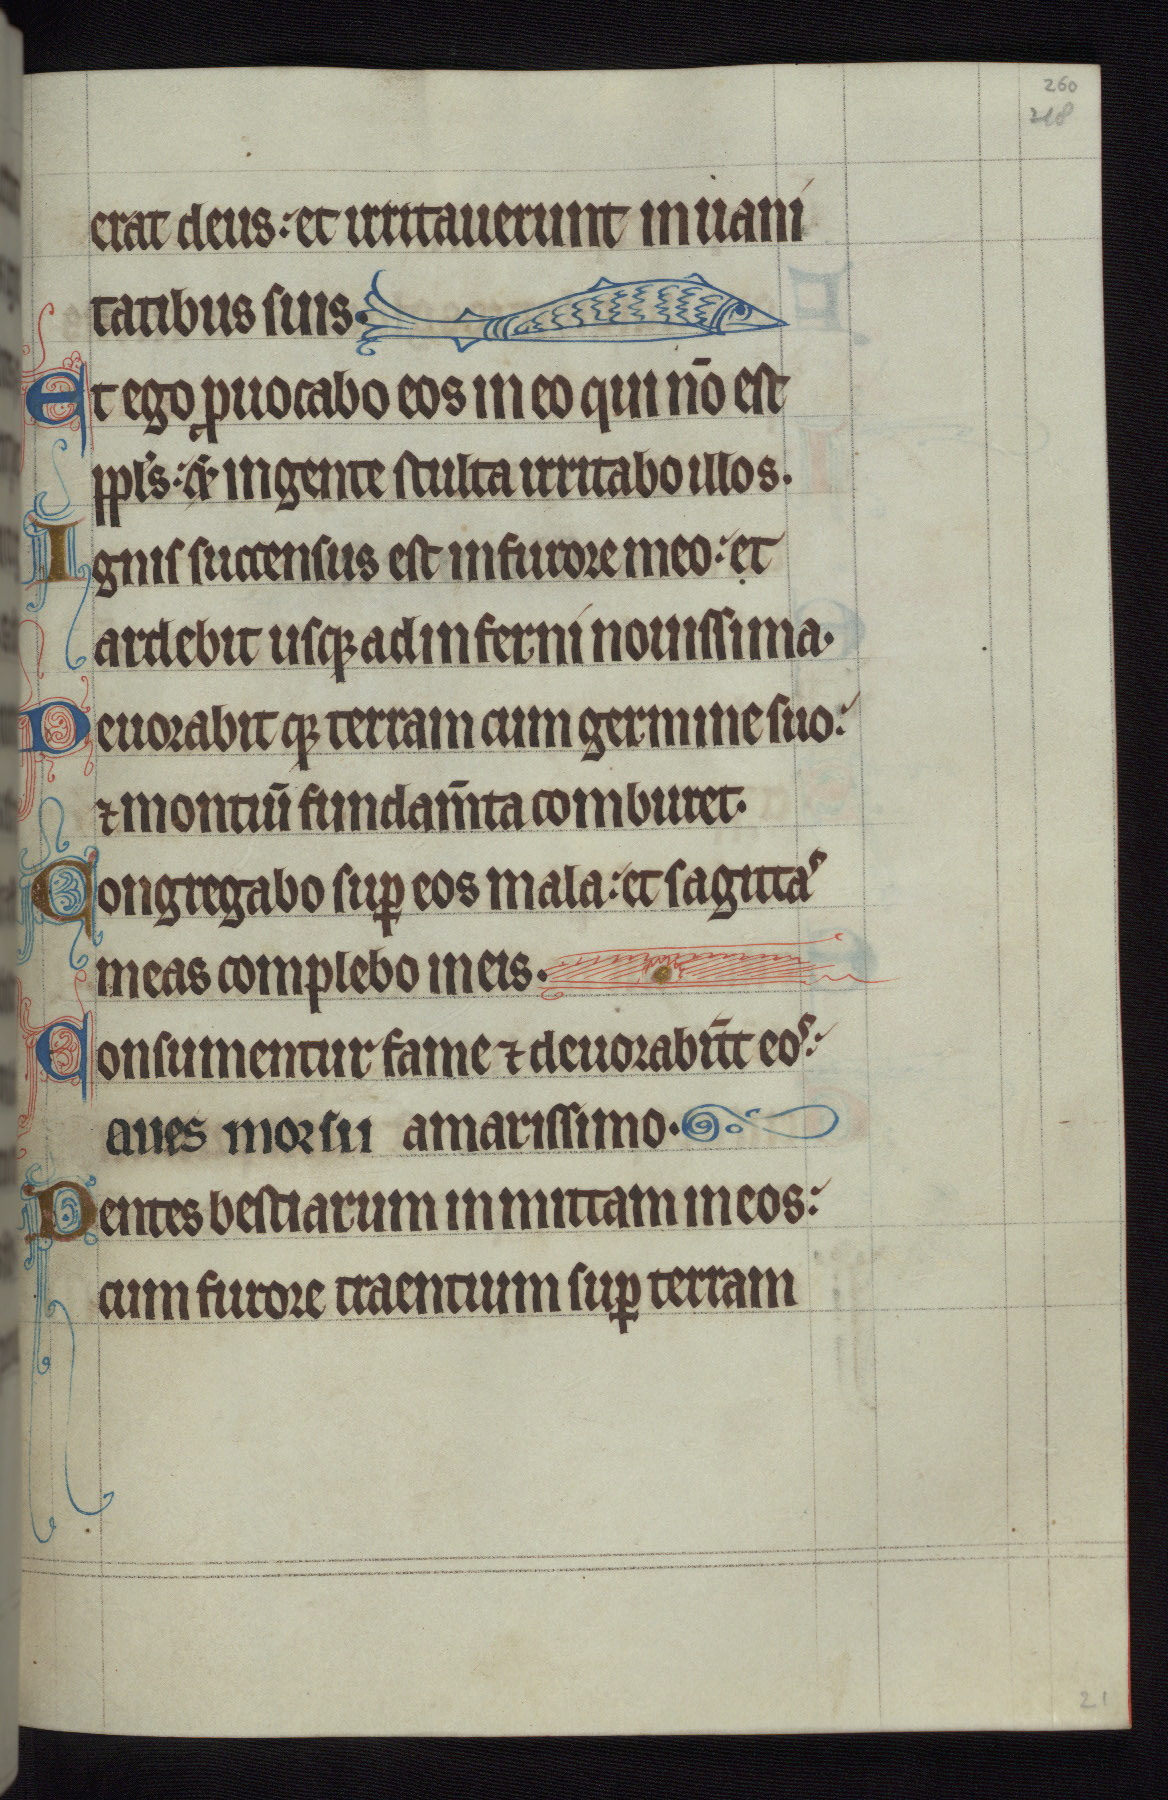 260
218
erat deus: et irritauerunt in uani
tatibus suis.
Et ego ꝓuocabo eos in eo qui nō est
ppl's: & in gente stulta irritabo illos.
Ignis succensus est in furore meo: et
ardebit usqꝫ ad inferni nouissima.
Deuorabit qꝫ terram cum germine suo:
⁊ montiū fundam̄ta comburet.
Congregabo suꝑ eos mala: et sagittas
meas complebo in eis.
Consumentur fame ⁊ deuorabūt eos:
aues morsu amarissimo.
Dentes bestiarum inmittam in eos:
cum furore traentium suꝑ terram
21